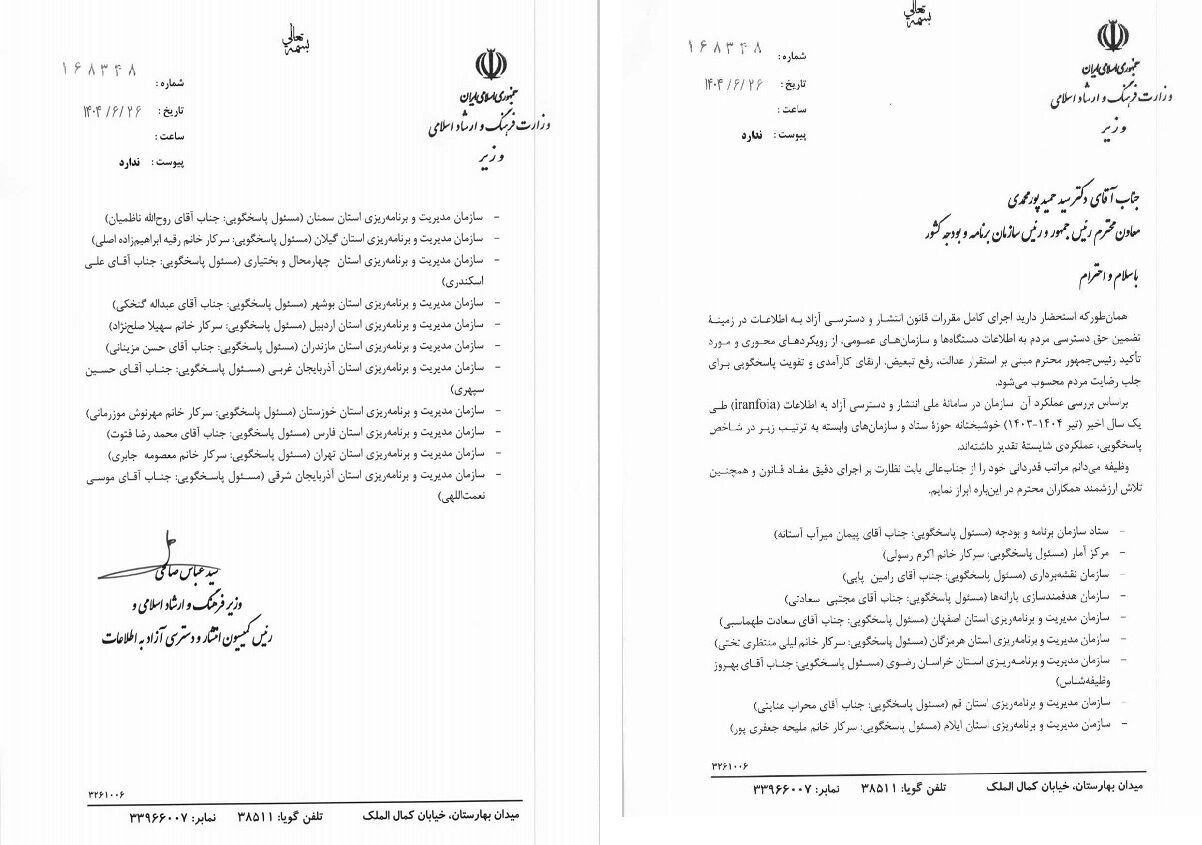 بسمه تعالی
جمهوری اسلامی ایران
وزارت فرهنگ و ارشاد اسلامی
وزیر
شماره: ۱۶۸۳۴۸
تاریخ: ۱۴۰۴/۶/۲۶
ساعت:
پیوست: ندارد
جناب آقای دکتر سید حمید پورمحمدی
معاون محترم رئیس جمهور و رئیس سازمان برنامه و بودجه کشور
با سلام و احترام
همان‌طورکه استحضار دارید اجرای کامل مقررات قانون انتشار و دسترسی آزاد به اطلاعات در زمینهٔ
تضمین حق دسترسی مردم به اطلاعات دستگاه‌ها و سازمان‌های عمومی، از رویکردهای محوری و مورد
تأکید رئیس‌جمهور محترم مبنی بر استقرار عدالت، رفع تبعیض، ارتقای کارآمدی و تقویت پاسخگویی برای
جلب رضایت مردم محسوب می‌شود.
براساس بررسی عملکرد آن سازمان در سامانهٔ ملی انتشار و دسترسی آزاد به اطلاعات (iranfoia) طی
یک سال اخیر (تیر ۱۴۰۴-۱۴۰۳) خوشبختانه حوزهٔ ستاد و سازمان‌های وابسته به ترتیب زیر در شاخص
پاسخگویی، عملکردی شایستهٔ تقدیر داشته‌اند.
وظیفه می‌دانم مراتب قدردانی خود را از جناب‌عالی بابت نظارت بر اجرای دقیق مفاد قانون و همچنین
تلاش ارزشمند همکاران محترم در این‌باره ابراز نمایم.
- ستاد سازمان برنامه و بودجه (مسئول پاسخگویی: جناب آقای پیمان میرآب آستانه)
- مرکز آمار (مسئول پاسخگویی: سرکار خانم اکرم رسولی)
- سازمان نقشه‌برداری (مسئول پاسخگویی: جناب آقای رامین پاپی)
- سازمان هدفمندسازی یارانه‌ها (مسئول پاسخگویی: جناب آقای مجتبی سعادتی)
- سازمان مدیریت و برنامه‌ریزی استان اصفهان (مسئول پاسخگویی: جناب آقای سعادت طهماسبی)
- سازمان مدیریت و برنامه‌ریزی استان هرمزگان (مسئول پاسخگویی: سرکار خانم لیلی منتظری تختی)
- سازمان مدیریت و برنامه‌ریزی استان خراسان رضوی (مسئول پاسخگویی: جناب آقای بهروز
وظیفه‌شناس)
- سازمان مدیریت و برنامه‌ریزی استان قم (مسئول پاسخگویی: جناب آقای محراب عنایتی)
- سازمان مدیریت و برنامه‌ریزی استان ایلام (مسئول پاسخگویی: سرکار خانم ملیحه جعفری پور)
۳۲۶۱۰۰۶
میدان بهارستان، خیابان کمال الملک تلفن گویا: ۳۸۵۱۱ نمابر: ۳۳۹۶۶۰۰۷
بسمه تعالی
جمهوری اسلامی ایران
وزارت فرهنگ و ارشاد اسلامی
وزیر
شماره: ۱۶۸۳۴۸
تاریخ: ۱۴۰۴/۶/۲۶
ساعت:
پیوست: ندارد
- سازمان مدیریت و برنامه‌ریزی استان سمنان (مسئول پاسخگویی: جناب آقای روح‌الله ناظمیان)
- سازمان مدیریت و برنامه‌ریزی استان گیلان (مسئول پاسخگویی: سرکار خانم رقیه ابراهیم‌زاده اصلی)
- سازمان مدیریت و برنامه‌ریزی استان چهارمحال و بختیاری (مسئول پاسخگویی: جناب آقای علی
اسکندری)
- سازمان مدیریت و برنامه‌ریزی استان بوشهر (مسئول پاسخگویی: جناب آقای عبداله گنخکی)
- سازمان مدیریت و برنامه‌ریزی استان اردبیل (مسئول پاسخگویی: سرکار خانم سهیلا صلح‌نژاد)
- سازمان مدیریت و برنامه‌ریزی استان مازندران (مسئول پاسخگویی: جناب آقای حسن مزینانی)
- سازمان مدیریت و برنامه‌ریزی استان آذربایجان غربی (مسئول پاسخگویی: جناب آقای حسین
سپهری)
- سازمان مدیریت و برنامه‌ریزی استان خوزستان (مسئول پاسخگویی: سرکار خانم مهرنوش موزرمانی)
- سازمان مدیریت و برنامه‌ریزی استان فارس (مسئول پاسخگویی: جناب آقای محمد رضا فتوت)
- سازمان مدیریت و برنامه‌ریزی استان تهران (مسئول پاسخگویی: سرکار خانم معصومه جابری)
- سازمان مدیریت و برنامه‌ریزی استان آذربایجان شرقی (مسئول پاسخگویی: جناب آقای موسی
نعمت‌اللهی)
سید عباس صالحی
وزیر فرهنگ و ارشاد اسلامی و
رئیس کمیسیون انتشار و دسترسی آزاد به اطلاعات
۳۲۶۱۰۰۶
میدان بهارستان، خیابان کمال الملک تلفن گویا: ۳۸۵۱۱ نمابر: ۳۳۹۶۶۰۰۷